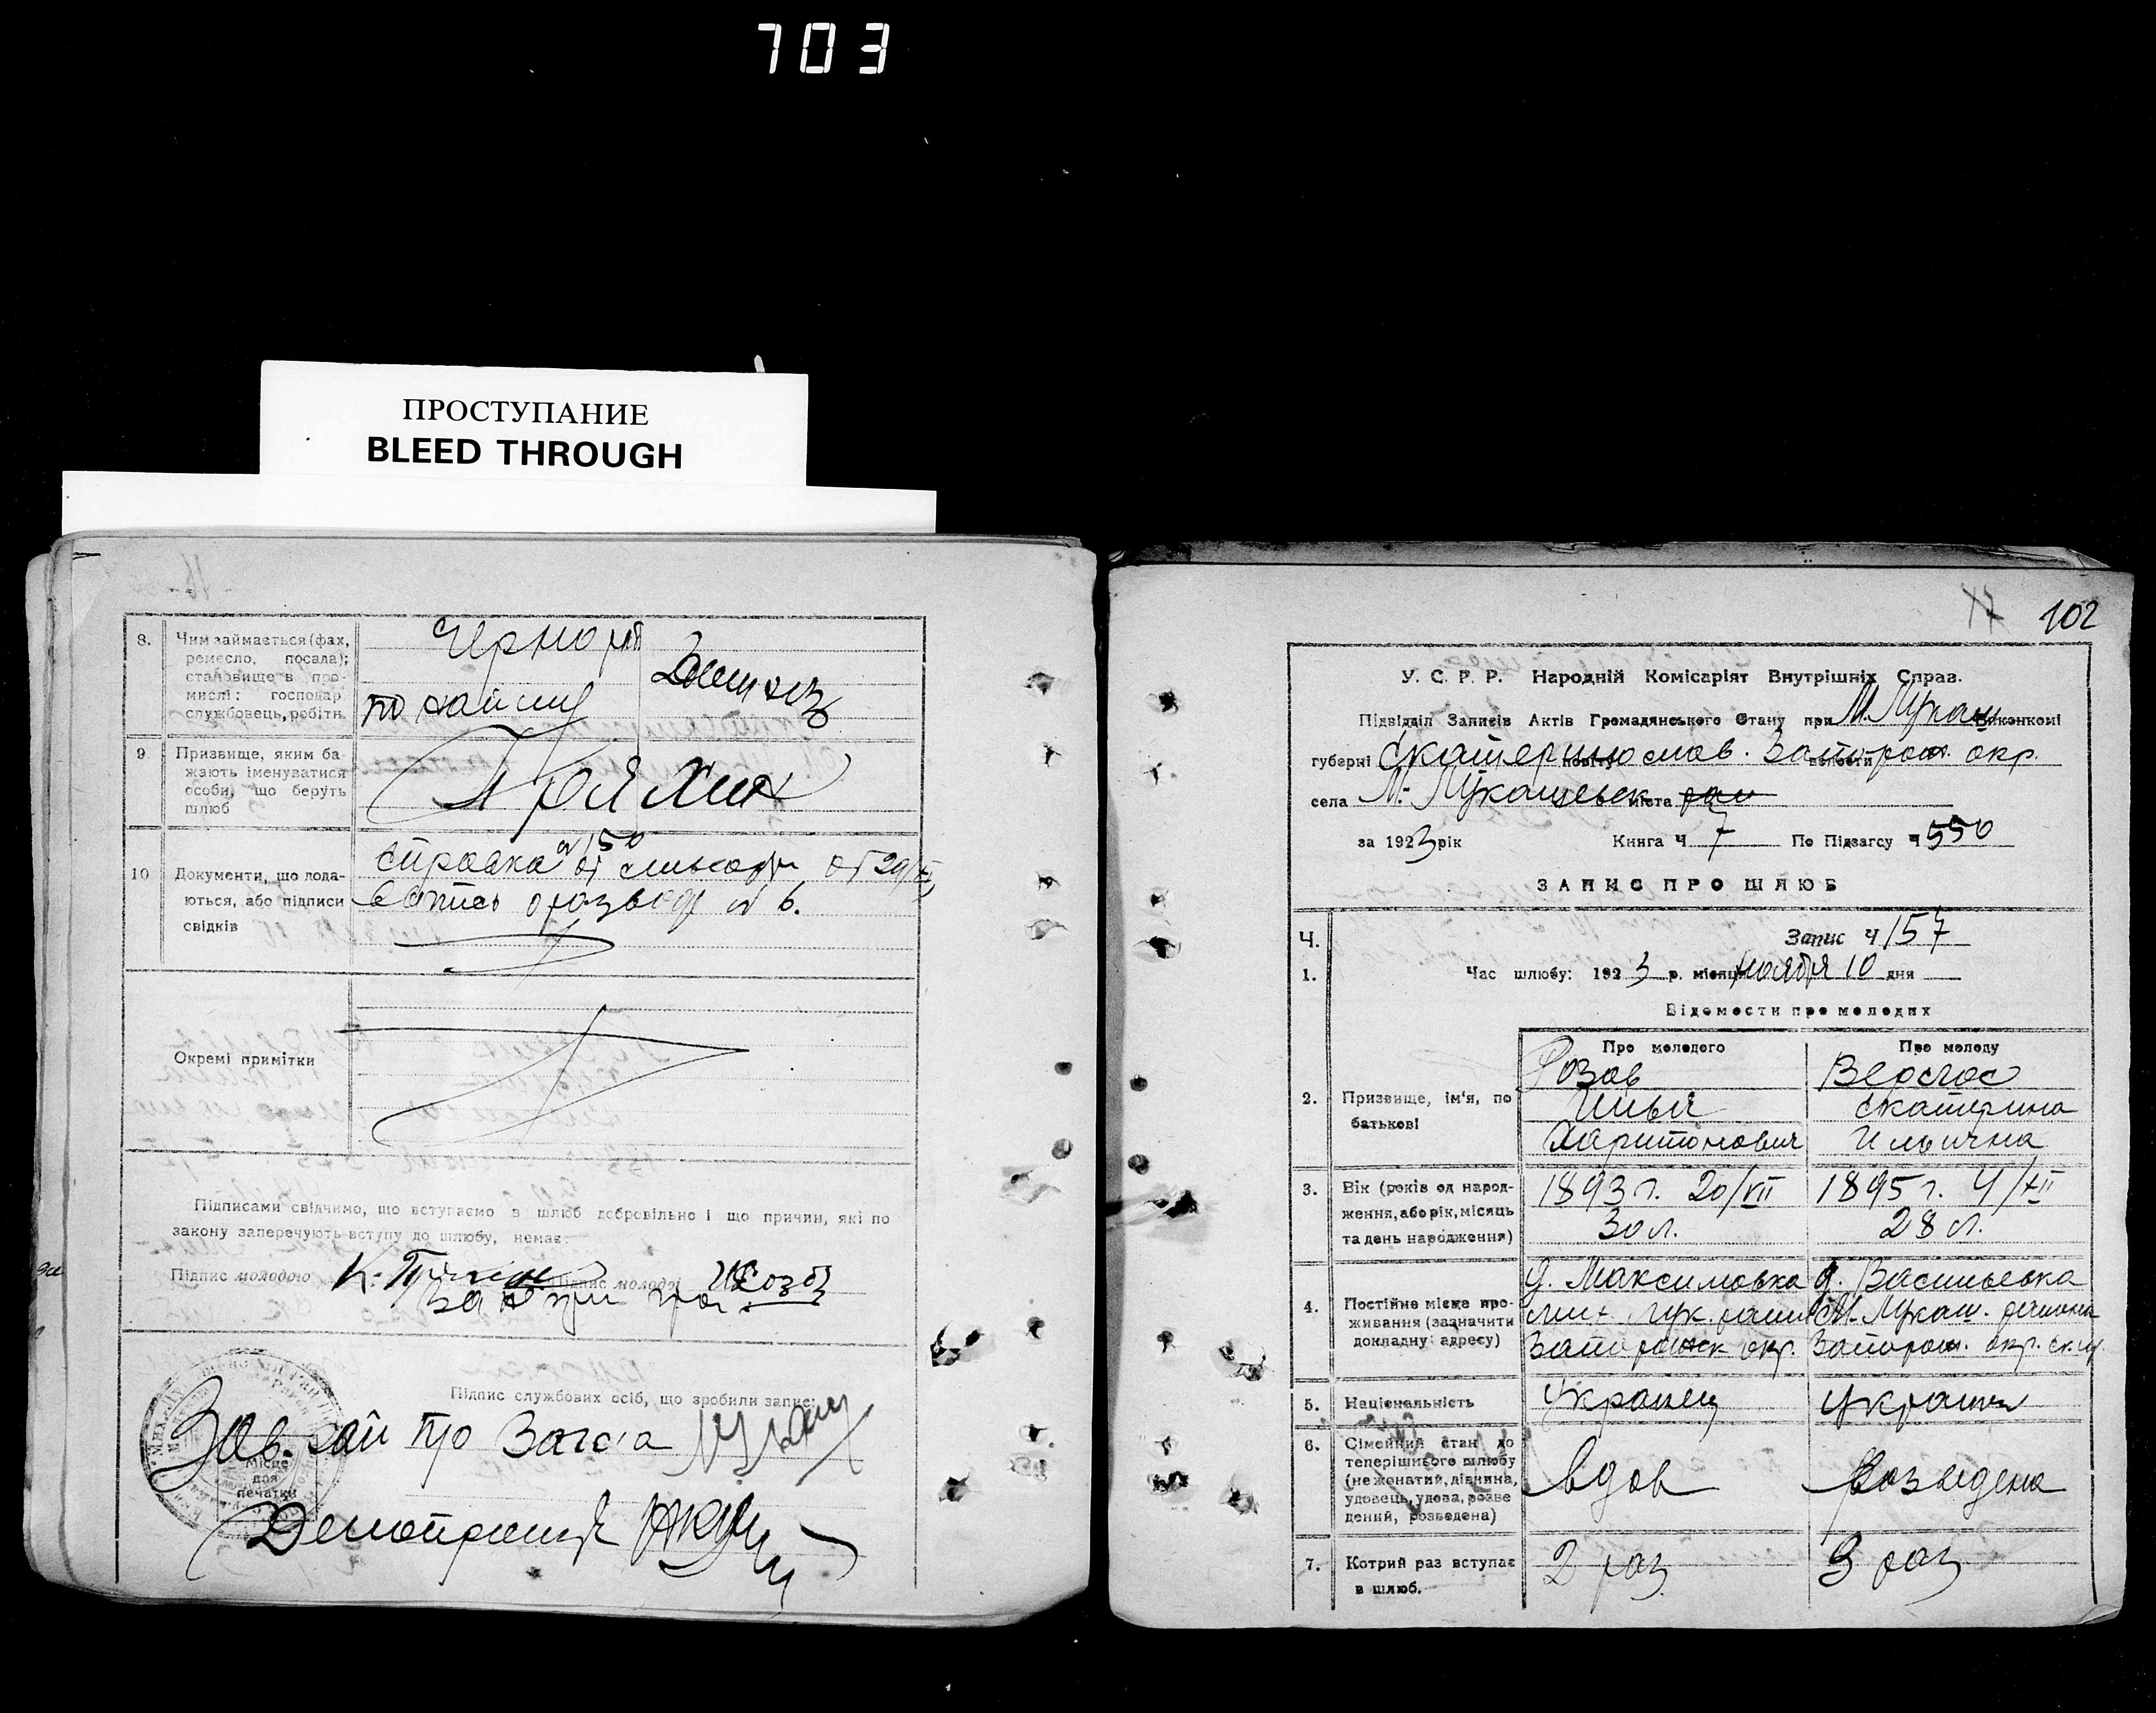 703
ПРОСТУПАНИЕ
BLEED THROUGH
8. Чим займається (фах,
ремесло, посада);
становище в про-
мислі: господар
службовець, робітн.
Чернораб
по найму
Домохоз
9 Призвище, яким ба-
жають іменуватися
особи, що беруть
шлюб
10 Документи, що пода-
ються, або підписи
свідків
Справка № 150 от от 29/
запись о разводе № 6.
Окремі примітки
Підписами свідчимо, що вступаємо в шлюб добровільно і що причин, які по
закону заперечують вступу до шлюбу, немає.
Підпис молодого Підпис молодої
Підпис службових осіб, що зробили запис:
Зав. рай про Загса
Місце
для
печатки
Делопроизв
102
У. С. Р. Р. Народній Комісаріят Внутрішніх Справ.
Підвідділ Записів Актів Громадянського Стану при М. Лукаш Виконкомі
губерні Екатеринослав. повіту Запорож. волости окр.
села М-Лукашевск міста рай
за 1923 рік Книга Ч 7 По Підзагсу Ч 550
ЗАПИС ПРО ШЛЮБ
Ч. Запис Ч 157
1. Час шлюбу: 1923 р. місяця ноября 10 дня
Відомости про молодих
Про молодого Про молоду
2. Призвище, ім'я, по
батькові
Розов
Илья
Харитонович
Екатерина
Ильична
3. Вік (років од народ-
ження, або рік, місяць
та день народження)
1893 г. 20/VII
30 л.
1895 г. 4/XII
28 л.
4. Постійне місце про-
живання (зазначити
докладну адресу)
д. Максимовка
Мих. Лук. район
Запорожск окр.
д. Васильевка
М. Лукаш. района
Запорож. окр. Ек. г.
5. Національність
Украинец
Украин
6. Сімейний стан до
теперішнього шлюбу
(нежонатий, дівчина,
удовець, удова, розве
дений, розведена)
вдов
Розведена
7. Котрий раз вступає
в шлюб.
2 раз
3 раз